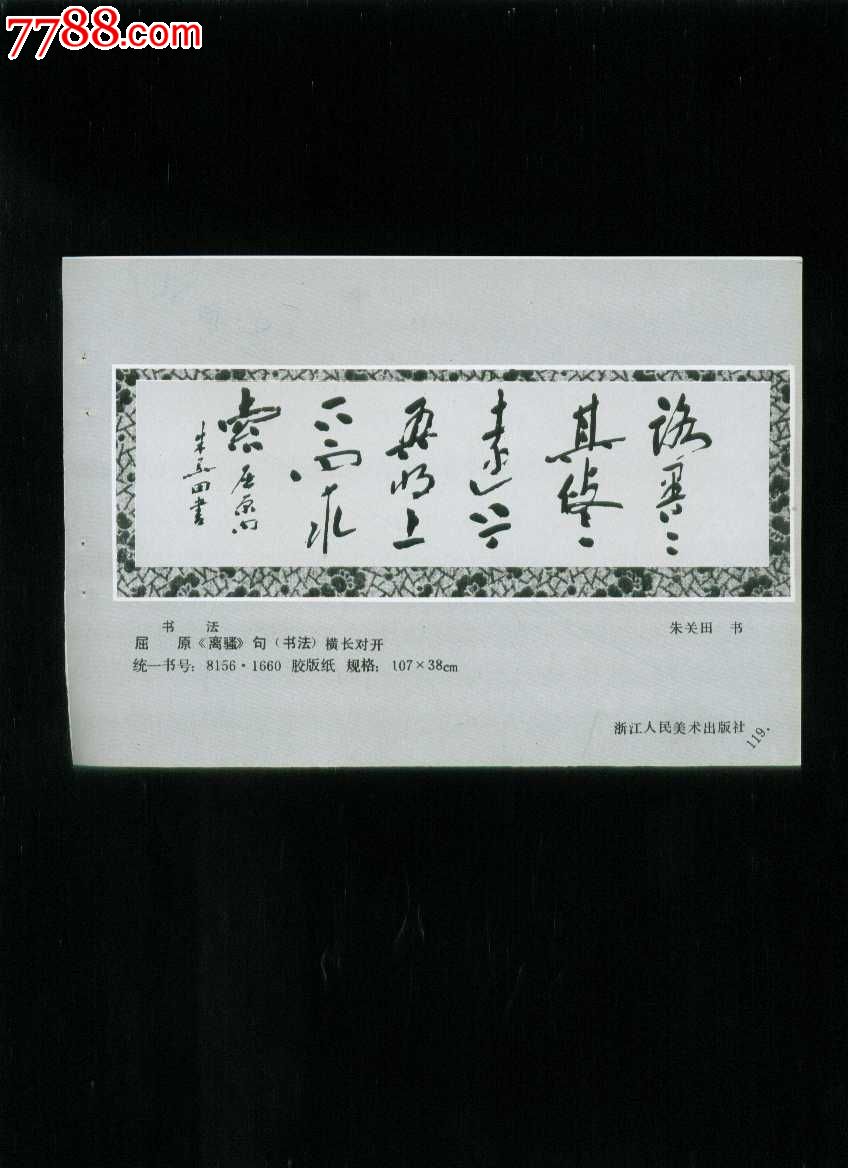 7788.com
路曼々
其修
遠兮
吾将上
下而求
索 屈原句
朱关田書
书 法
屈 原《离骚》句（书法）横长对开
朱关田 书
统一书号：8156·1660 胶版纸 规格：107×38cm
浙江人民美术出版社
119.